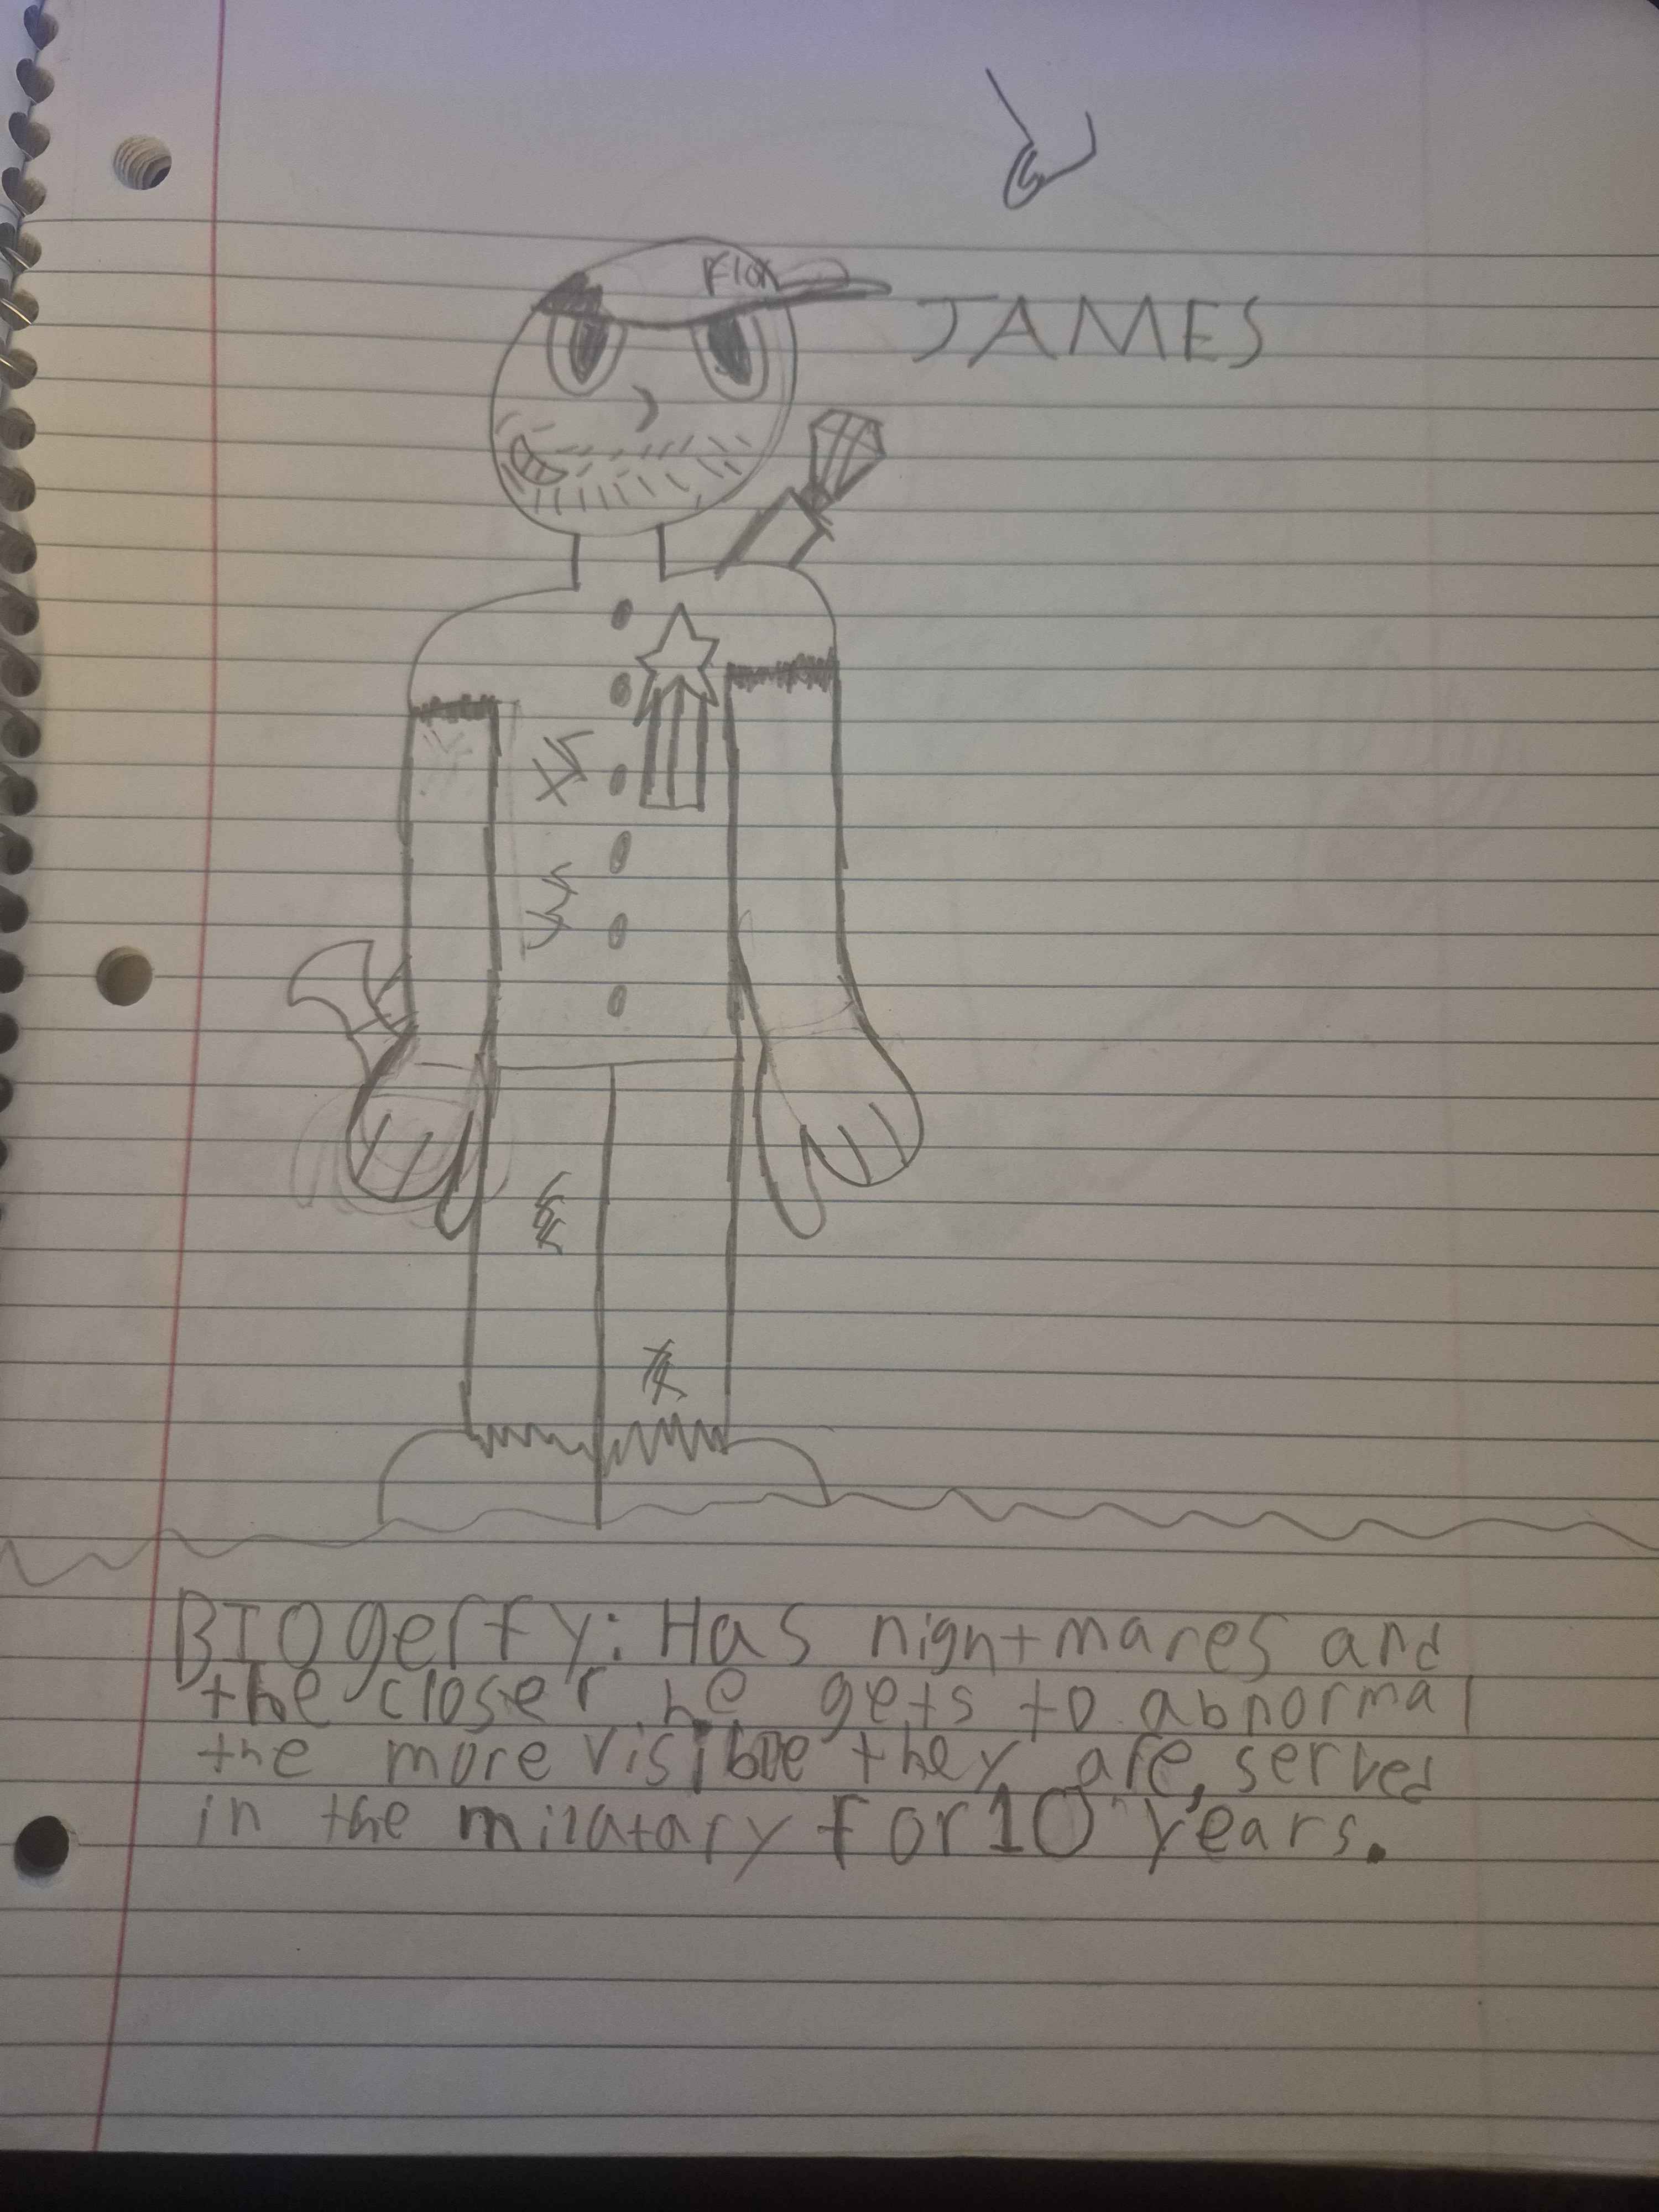 JAMES
BIOgerfy: Has nightmares and
the closer he gets to abnormal
the more visible they are, served
in the milatary for 10 years.